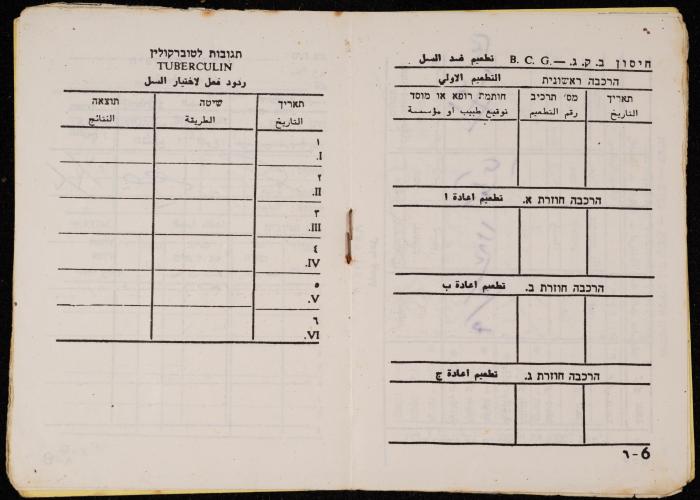 חיסון ב. ק. ג. — B. C. G. تطعيم ضد السل
הרכבה ראשונית التطعيم الاولي
תאריך מס׳ תרכיב חותמת רופא או מוסד
التاريخ رقم التطعيم توقيع طبيب او مؤسسة
הרכבה חוזרת א. تطعيم اعادة ا
הרכבה חוזרת ב. تطعيم اعادة ب
הרכבה חוזרת ג. تطعيم اعادة ج
٦-6
תגובות לטוברקולין
TUBERCULIN
ردود فعل لاختبار السل
תאריך שיטה תוצאה
التاريخ الطريقة النتائج
١
I.
٢
II.
٣
III.
٤
IV.
٥
V.
٦
VI.